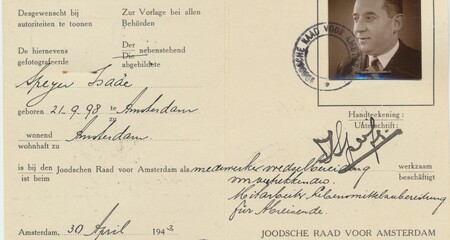 Desgewenscht bij
autoriteiten te toonen
Zur Vorlage bei allen
Behörden
De hiernevens
gefotografeerde
Der nebenstehend
Die
abgebildete
Speyer Isaäc
geboren 21.9.98 te Amsterdam
zu
wonend
wohnhaft zu
Amsterdam.
Handteekening:
Unterschrift:
is bij den Joodschen Raad voor Amsterdam als medewerker voedselbereiding werkzaam
ist beim
beschäftigt
Mitarbeiter Lebensmittelzubereitung
für Abreisende.
Amsterdam, 30 April 1943
JOODSCHE RAAD VOOR AMSTERDAM
JOODSCHE RAAD VOOR